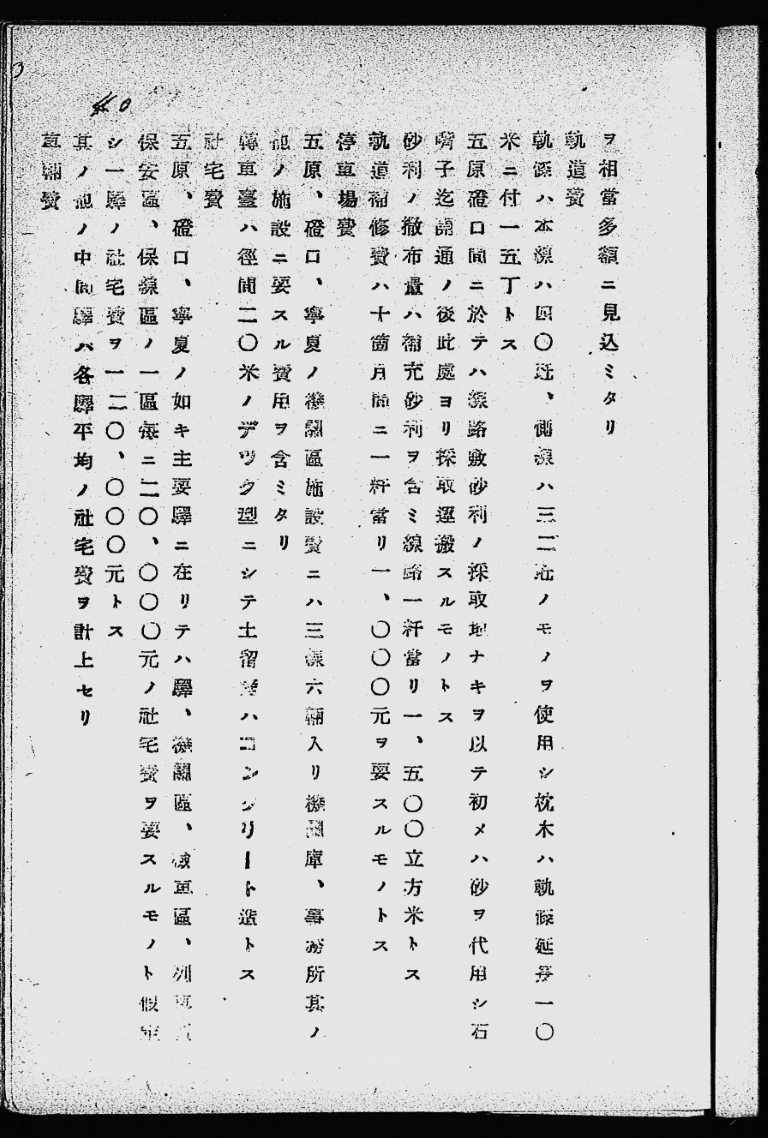 40
ヲ相當多額ニ見込ミタリ
軌道費
軌條ハ本線ハ四〇瓩、側線ハ三二瓩ノモノヲ使用シ枕木ハ軌條延長一〇
米ニ付一五丁トス
五原磴口間ニ於テハ線路敷砂利ノ採取地ナキヲ以テ初メハ砂ヲ代用シ石
嘴子迄開通ノ後此處ヨリ採取運搬スルモノトス
砂利ノ撒布量ハ補充砂利ヲ含ミ線路一粁當リ一、五〇〇立方米トス
軌道補修費ハ十箇月間ニ一粁當リ一、〇〇〇元ヲ要スルモノトス
停車場費
五原、磴口、寧夏ノ機關區施設費ニハ三線六輛入リ機關庫、事務所其ノ
他ノ施設ニ要スル費用ヲ含ミタリ
轉車臺ハ徑間二〇米ノデツク型ニシテ土留壁ハコンクリート造トス
社宅費
五原、磴口、寧夏ノ如キ主要驛ニ在リテハ驛、機關區、檢車區、列車區
保安區、保線區ノ一區每ニ二〇、〇〇〇元ノ社宅費ヲ要スルモノト假定
シ一驛ノ社宅費ヲ一二〇、〇〇〇元トス
其ノ他ノ中間驛ハ各驛平均ノ社宅費ヲ計上セリ
車輛費